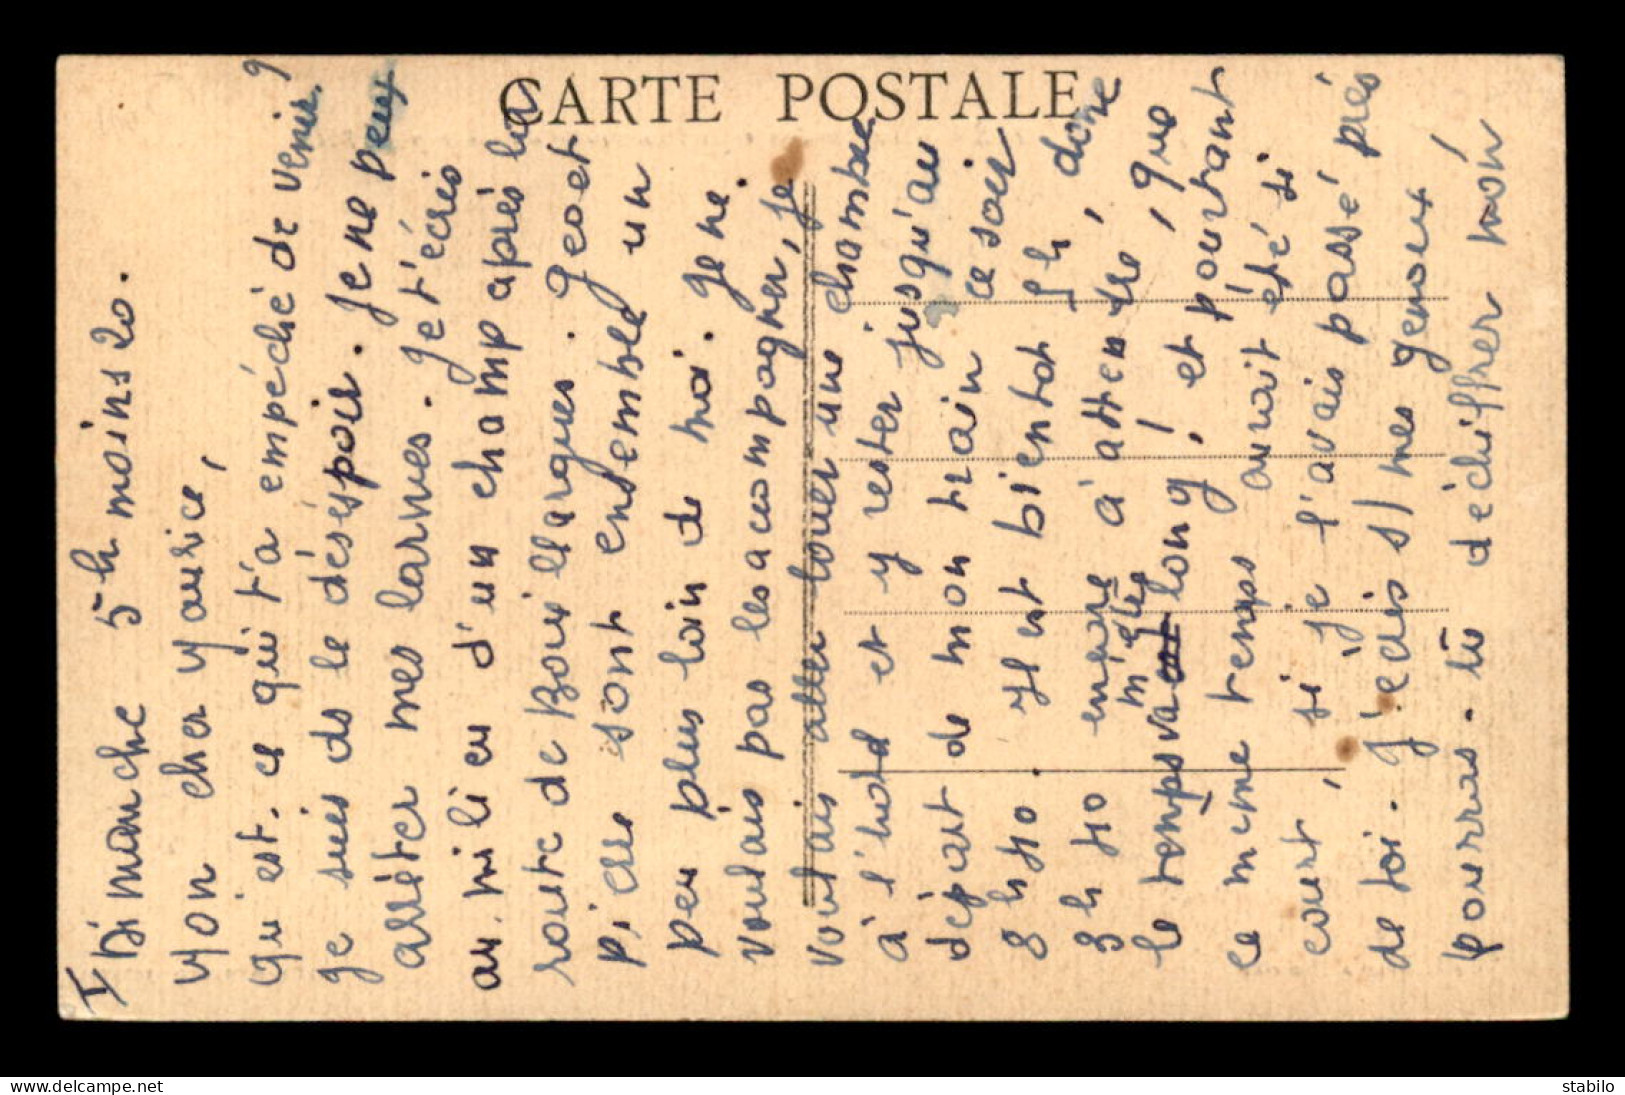 CARTE POSTALE
I
Dimanche 5h moins 20.
Mon cher Maurice,
Qu'est-ce qui t'a empêché de venir ?
Je suis ds le désespoir. Je ne peux
arrêter mes larmes. Je t'écris
au milieu d'un champ après la
route de Bouillargues. Geo et
Pierre sont ensemble un
peu plus loin de moi. Je ne
voulais pas les accompagner, je
voulais aller louer une chambre
à l'hotel et y rester jusqu'au
départ de mon train ce soir
8h40. Il est bientot 5h, donc
3h40 encore à attendre, que
le temps va m'être long ! et pourtant
ce même temps aurait été si
court, si je l'avais passé près
de toi. J'écris s/ mes genoux
pourras-tu déchiffrer mon
www.delcampe.net
stabilo